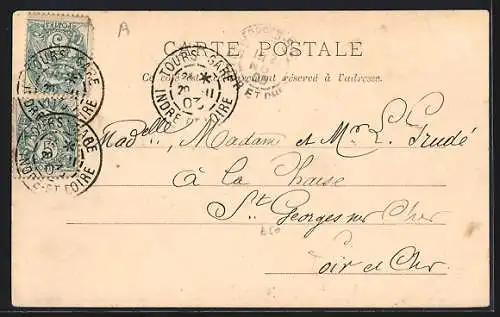 A
CARTE POSTALE
Ce côté est exclusivement réservé à l'adresse.
TOURS-GARE
INDRE-ET-LOIRE
03
TOURS-GARE
INDRE-ET-LOIRE
03
TOURS-GARE
INDRE-ET-LOIRE
03
Madelle, Madame et Mr L. Prudé
à la Chaise
St Georges sur Cher
Loir et Cher